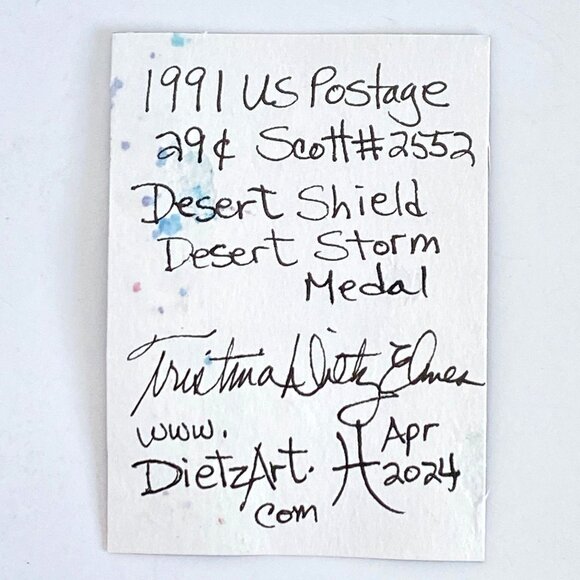 1991 US Postage
29¢ Scott#2552
Desert Shield
Desert Storm
Medal
Tristina Dietz Elmes
www.
DietzArt.
com
Apr
2024